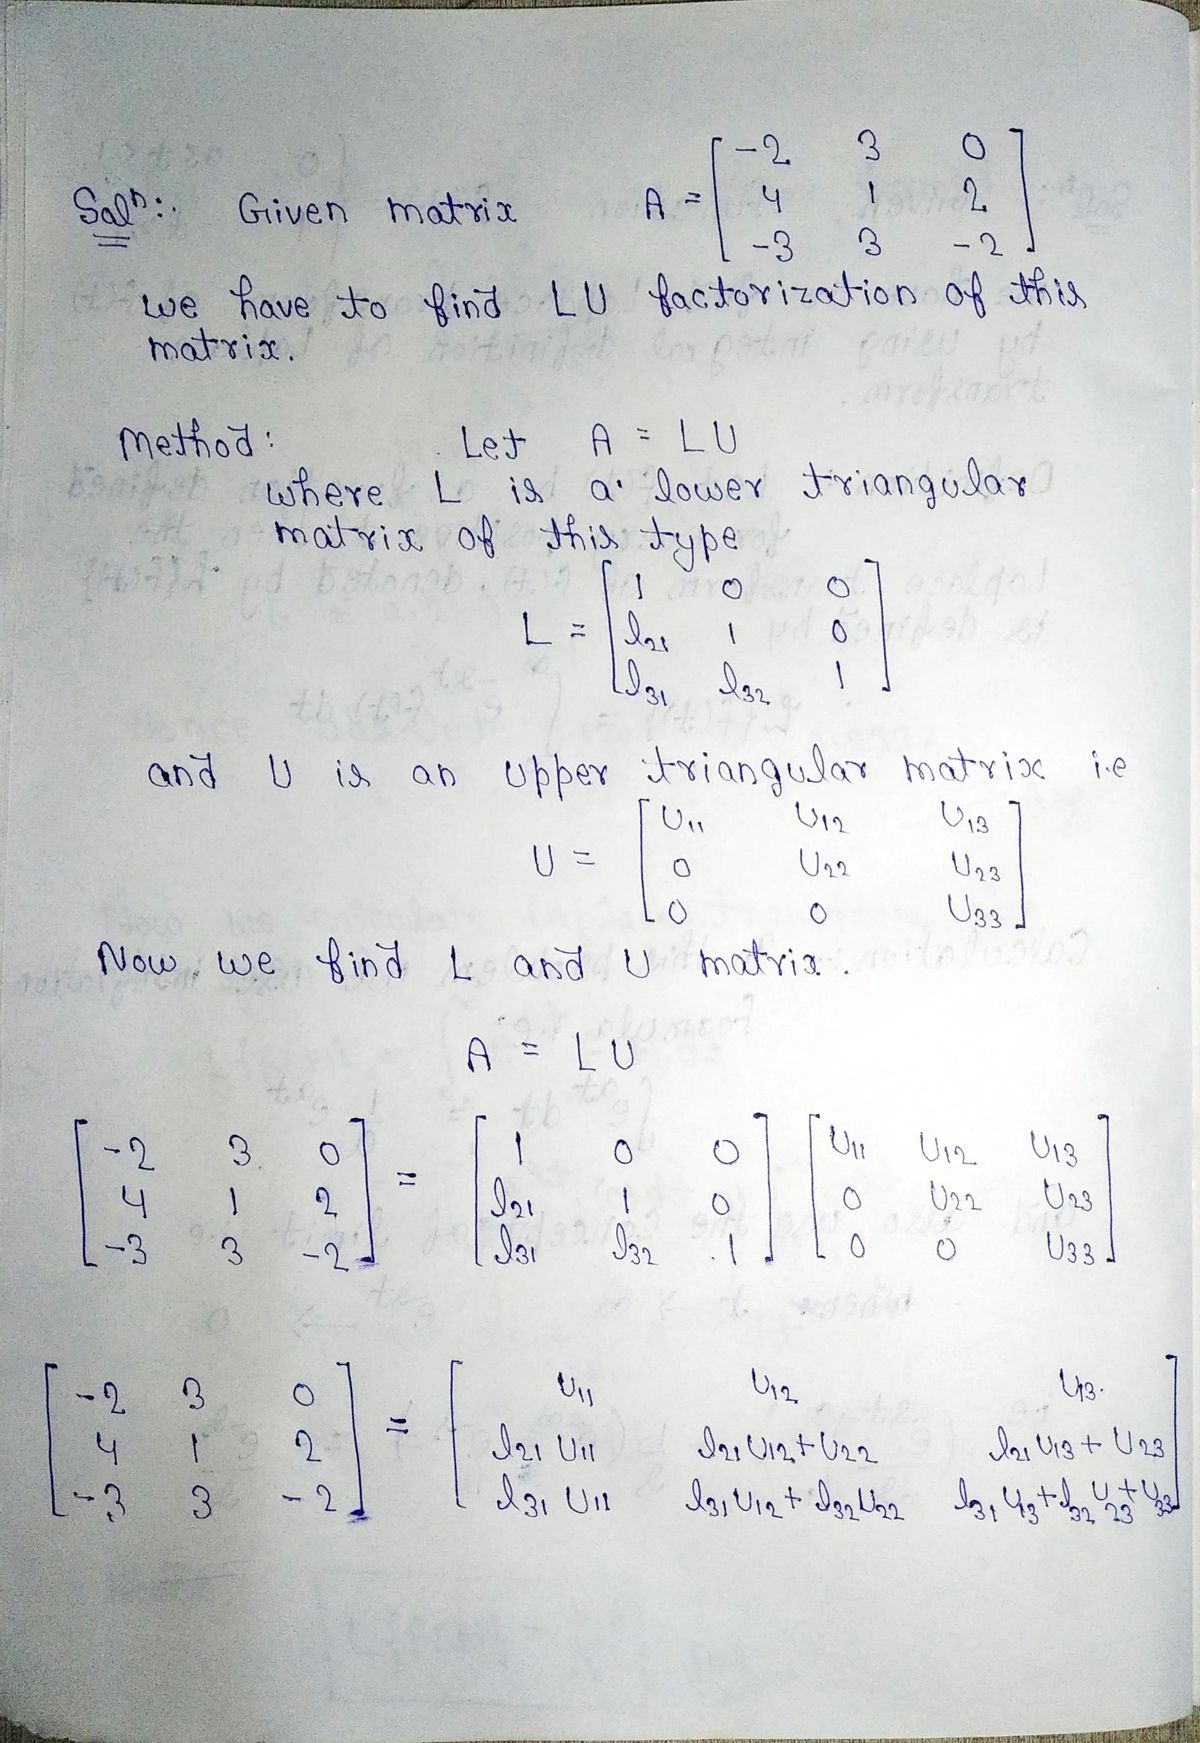 Solⁿ:. Given matrix A = [ -2 3 0
4 1 2
-3 3 -2 ]
we have to find LU factorization of this
matrix.
Method: Let A = LU
where L is a lower triangular
matrix of this type
L = [ 1 0 0
l21 1 0
l31 l32 1 ]
and U is an upper triangular matrix i.e
U = [ U11 U12 U13
0 U22 U23
0 0 U33 ]
Now we find L and U matrix.
A = LU
[ -2 3 0 ] = [ 1 0 0 ] [ U11 U12 U13 ]
[ 4 1 2 ] [ l21 1 0 ] [ 0 U22 U23 ]
[ -3 3 -2 ] [ l31 l32 1 ] [ 0 0 U33 ]
[ -2 3 0 ] = [ U11 U12 U13 ]
[ 4 1 2 ] [ l21 U11 l21 U12 + U22 l21 U13 + U23 ]
[ -3 3 -2 ] [ l31 U11 l31 U12 + l32 U22 l31 U13 + l32 U23 + U33 ]